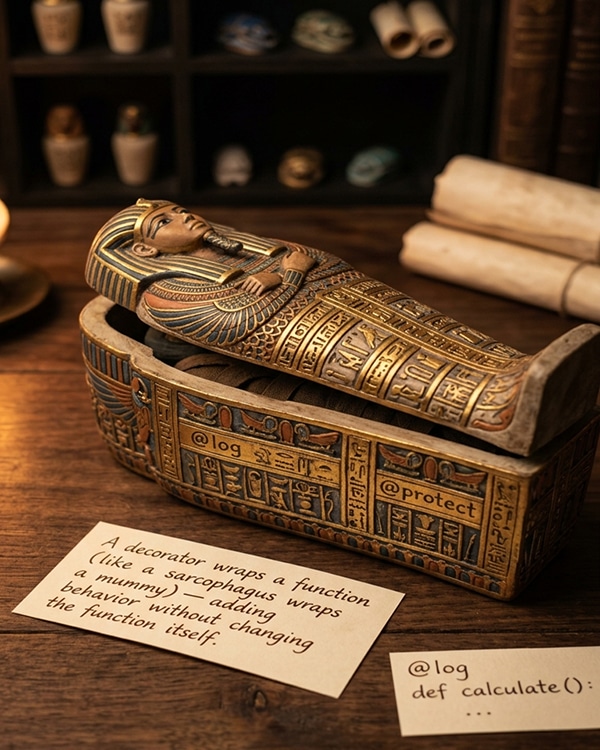 @log
@protect
A decorator wraps a function
(like a sarcophagus wraps
a mummy) — adding
behavior without changing
the function itself.
@log
def calculate():
...